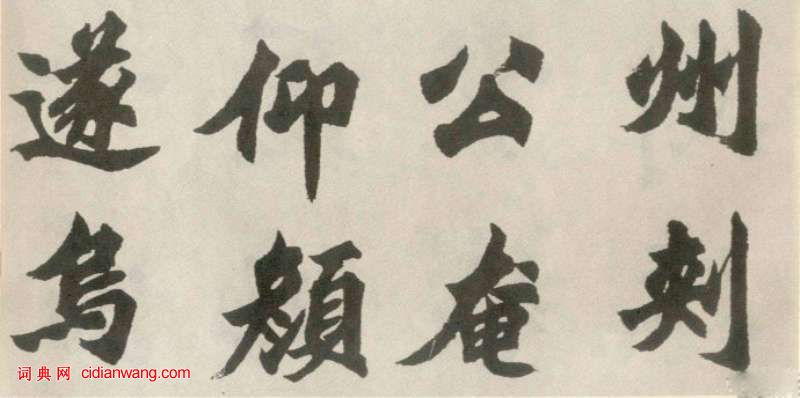 州刺
公奄
仰顏
遂烏
词典网 cidianwang.com